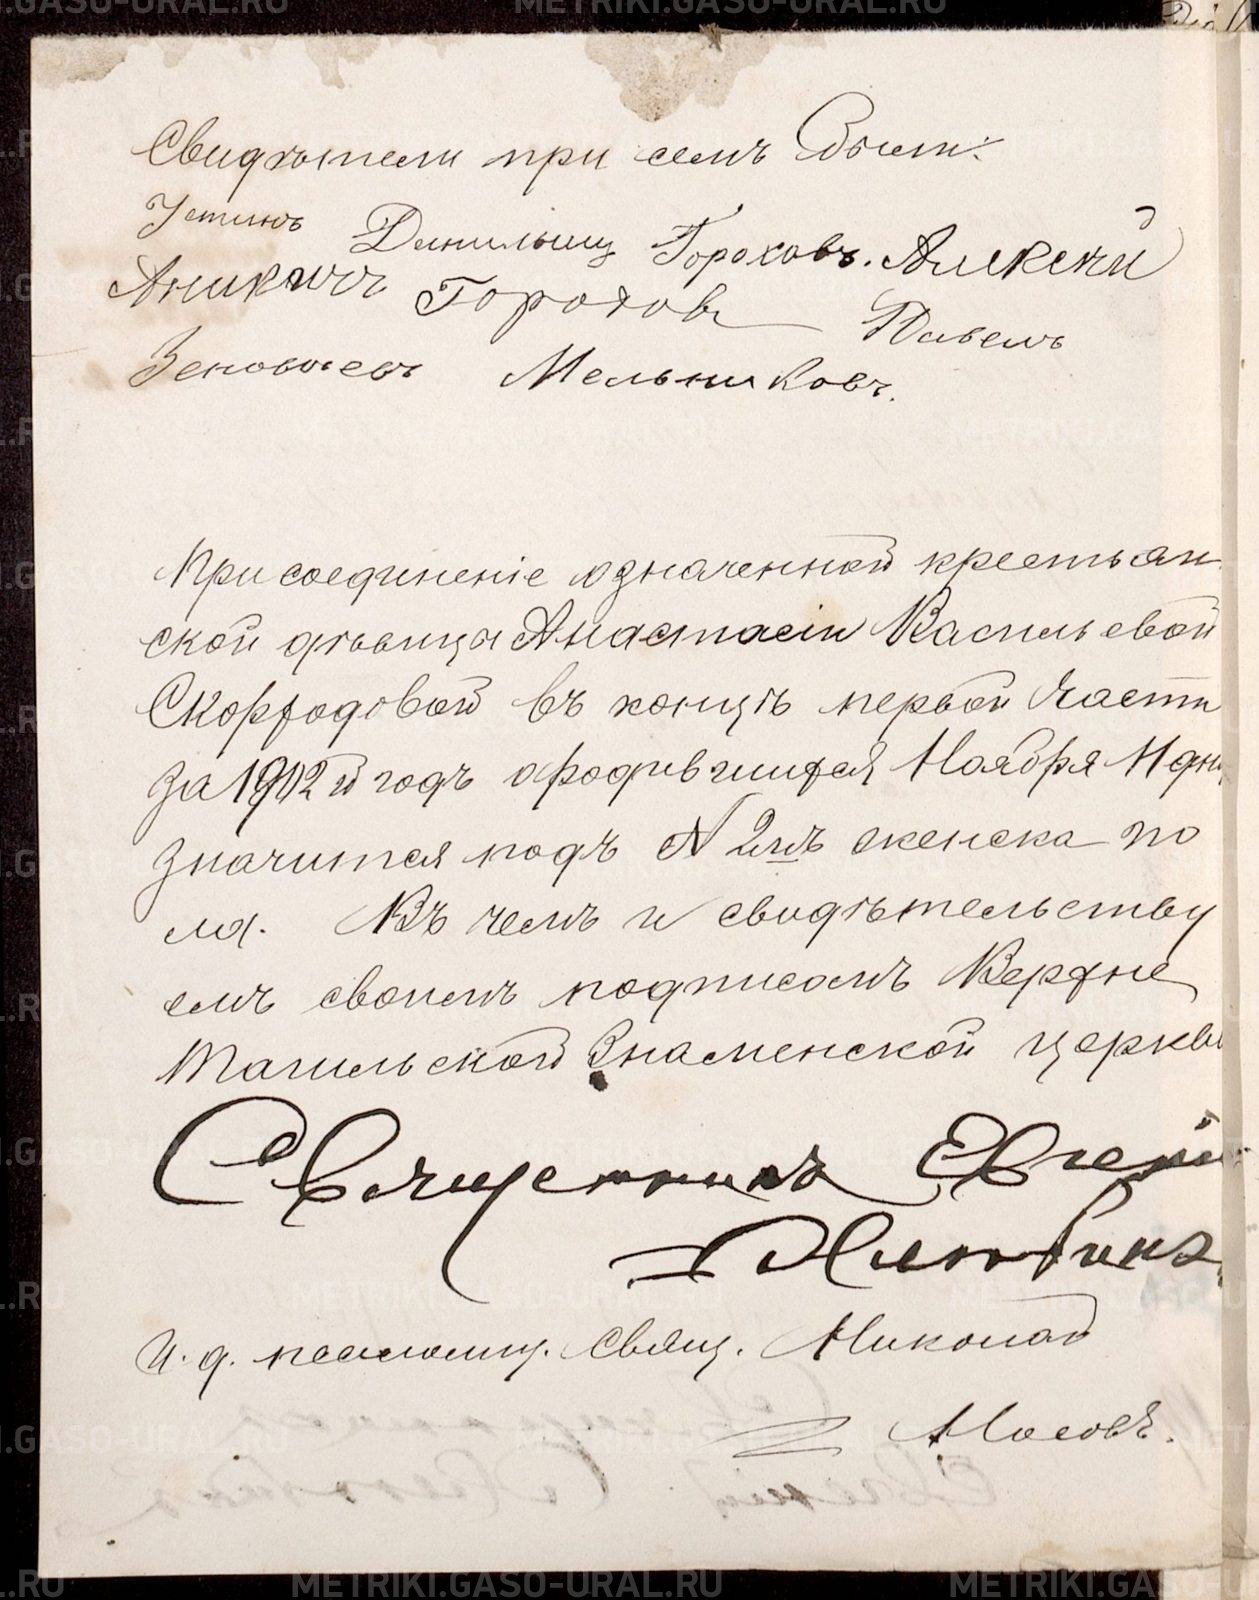 Свидѣтели при семъ были:
Устинъ Данильыц Гороховъ. Алексѣй
Аникичъ Горохов Павелъ
Зеновьевъ Мельниковъ.
Присоединеніе означенной крестьян
ской дѣвицы Анастасіи Васильевой
Скороходовой въ концѣ первой части
за 1902й годъ о родившихся Ноября 11 дня
значится подъ № 2мъ женска по
ла. Въ чемъ и свидѣтельству
емъ своимъ подписомъ Верхне
Тагильской Знаменской церкви
Священникъ Евгеній
и. д. псаломщ. Свящ. Николай
Носовъ.
METRIKI.GASO-URAL.RU